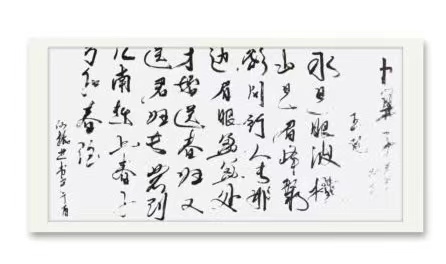 卜算子
王观
水是眼波横
山是眉峰聚
欲问行人去那
边眉眼盈盈处
才始送春归又
送君归去若到
江南赶上春千
万和春住